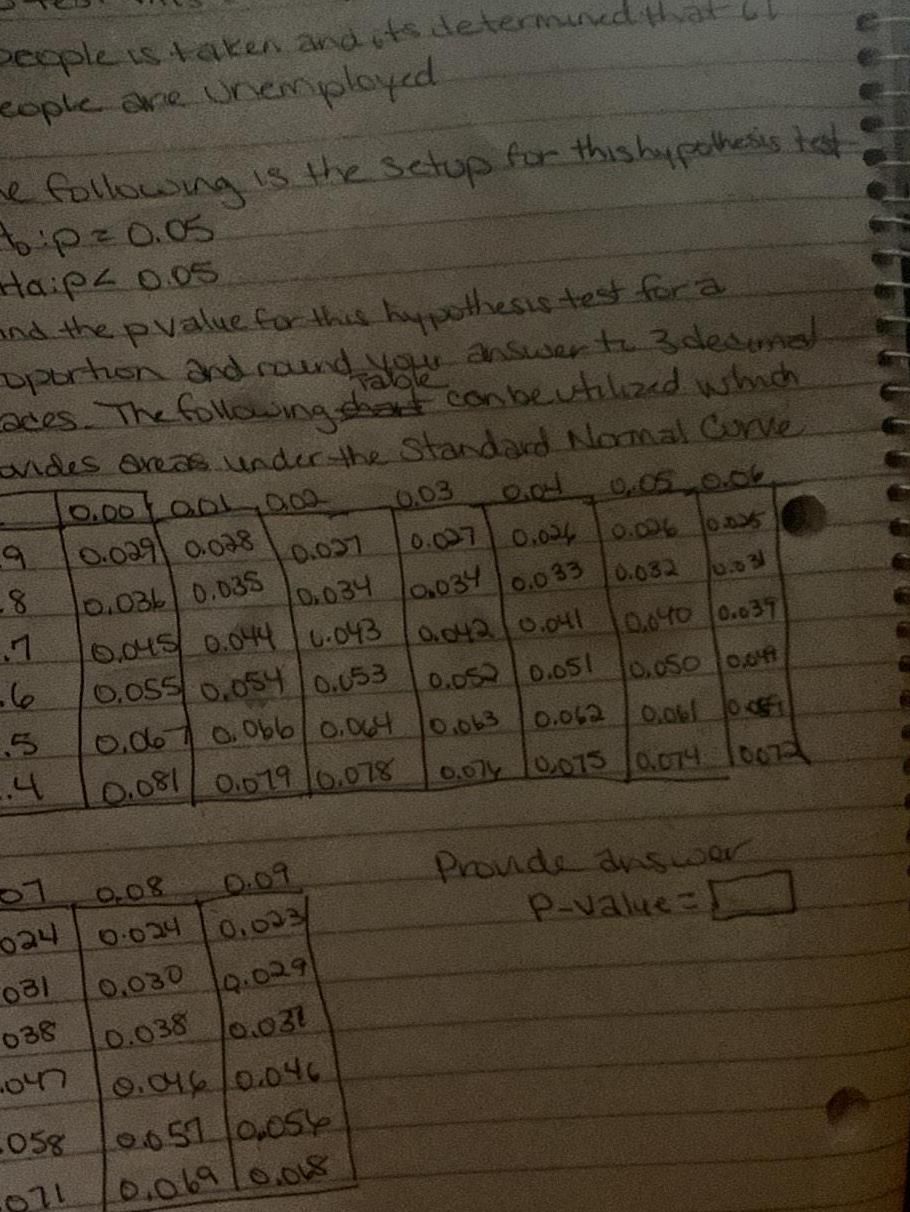 people is taken and its determined that 61
eople are Unemployed
e following is the setup for this hypothesis test
o:p = 0.05
Ha:p< 0.05
ind the p value for this hypothesis test for a
oportion and round your answer to 3 decimal
aces. The following Table can be utilized which
ovides areas under the Standard Normal Curve
0.00 0.01 0.02 0.03 0.04 0.05 0.06
9 0.029 0.028 0.027 0.027 0.026 0.026 0.025
.8 0.036 0.035 0.034 0.034 0.033 0.032 0.031
.7 0.045 0.044 0.043 0.042 0.041 0.040 0.039
.6 0.055 0.054 0.053 0.052 0.051 0.050 0.049
.5 0.067 0.066 0.064 0.063 0.062 0.061
.4 0.081 0.079 0.078 0.076 0.075 0.074 0.072
07 0.08 0.09
024 0.024 0.023
031 0.030 0.029
038 0.038
.047 0.046 0.046
.058 0.057 0.056
071 0.069 0.068
Provide answer
P-value =